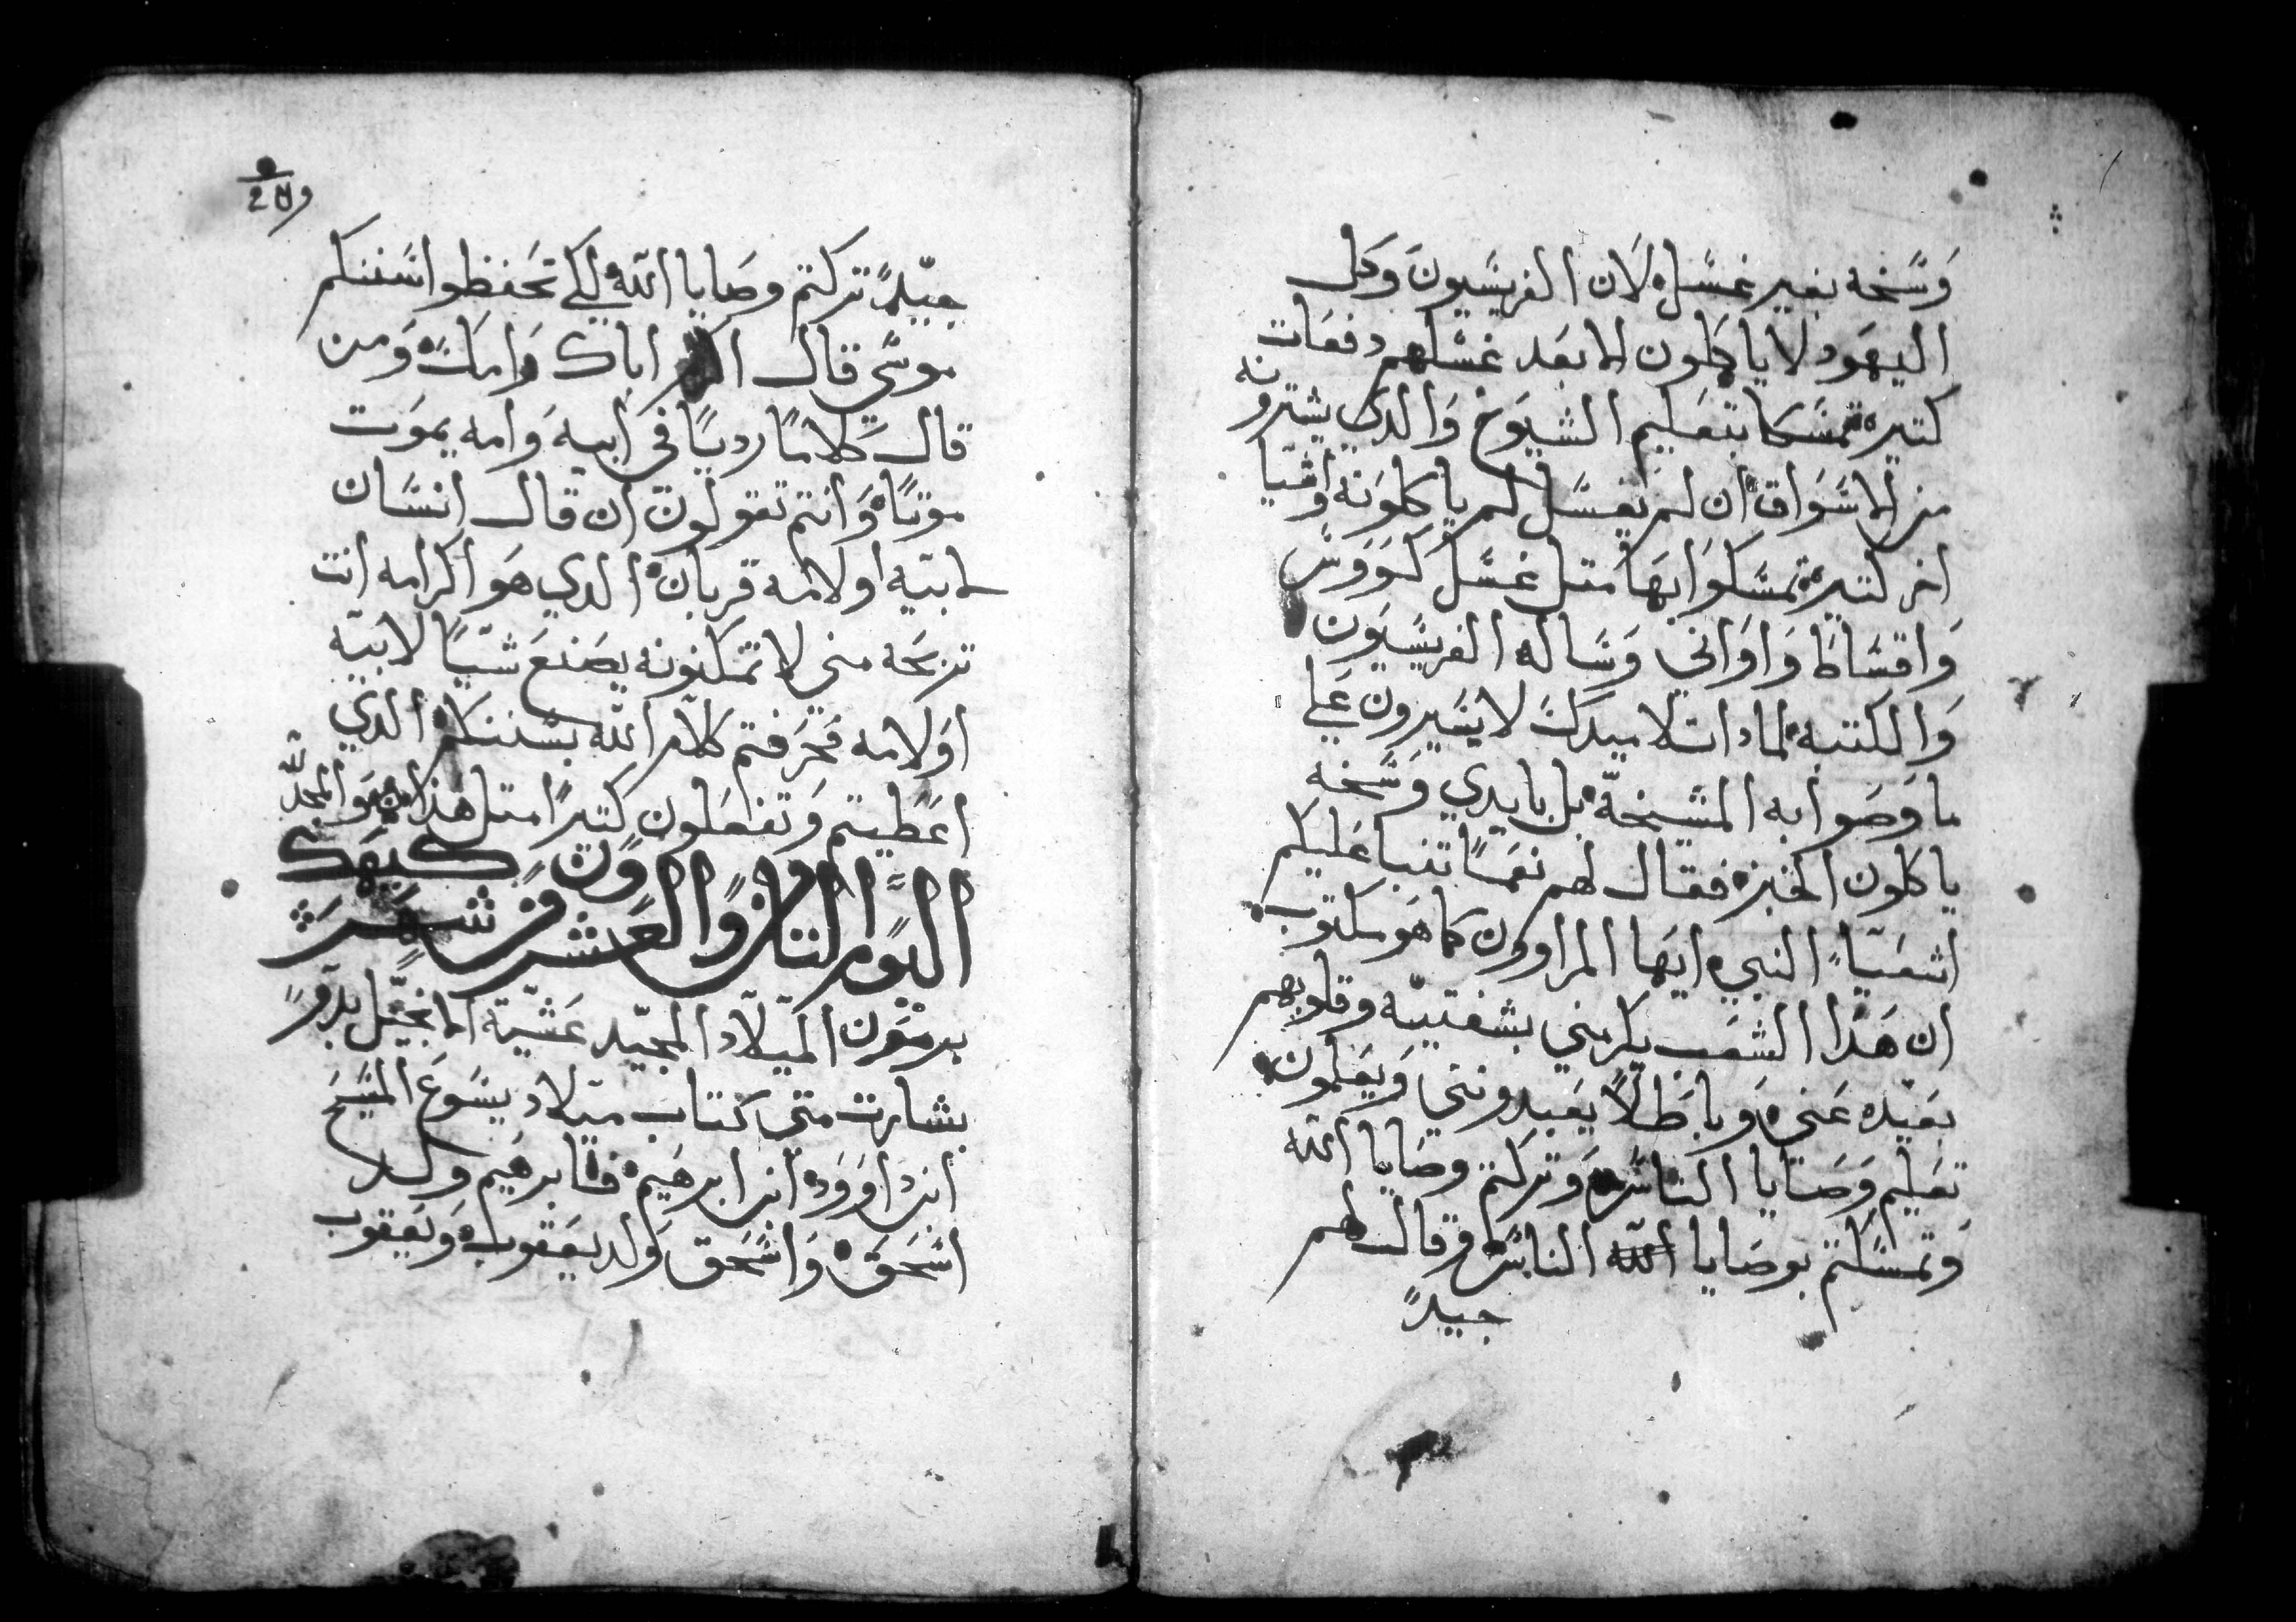 وسخه بغير غسل لان الفريسيون وكل
اليهود لا ياكلون الا بعد غسلهم دفعات
كتيره تمسكا بتعليم الشيوخ والدي يشترونه
من الاسواق ان لم يغسل لم ياكلونه واشيا
اخر كتيرة تمسكوا بها متل غسل كووس
واقساط واواني وساله الفريسيون
والكتبه لمادا تلاميدك لا يسيرون علي
ما وصوا به المشيخة بل بايدي وسخه
ياكلون الخبز فقال لهم نعما تنبا عليكم
اشعيا النبي ايها المراوون كما هو مكتوب
ان هدا الشعب يكرمني بشفتيه وقلوبهم
بعيده عني وباطلا يعبدونني ويعلمون
تعليم وصايا الناس وتركتم وصايا الله
وتمسكتم بوصايا الله الناس وقال لهم
جيدا
جيدا تركتم وصايا الله لكي تحفظوا سننكم
موسي قال اكرم اباك وامك ومن
قال كلاما رديا في ابيه وامه يموت
موتا وانتم تقولون ان قال انسان
لابيه او لامه قربان الدي هو اكرامه انت
تربحه مني لا تمكنونه يصنع شيا لابيه
او لامه فحرفتم كلام الله بسننكم الدي
اعطيتم وتفعلون كتيرا متل هدا والمجد لله
اليوم التامن والعشرون من شهر كيهك
برمون الميلاد المجيد عشية الانجيل بدو
بشارت متي كتاب ميلاد يسوع المسيح
ابن داوود ابن ابرهيم فابرهيم ولد
اسحق واسحق ولد يعقوب ويعقوب